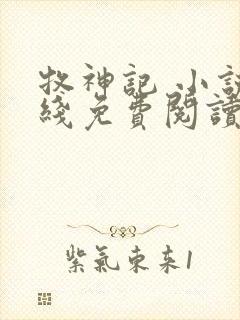 牧神記 小説
綫免費閱讀
紫氣東来1